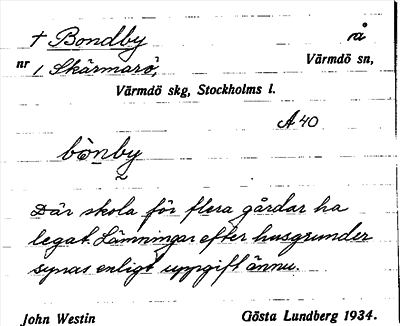 † Bondby å
nr 1 Skärmarö, Värmdö sn,
Värmdö skg, Stockholms l.
A 40
bònby
Där skola för flera gårdar ha
legat. Lämningar efter husgrunder
synas enligt uppgift ännu.
John Westin Gösta Lundberg 1934.